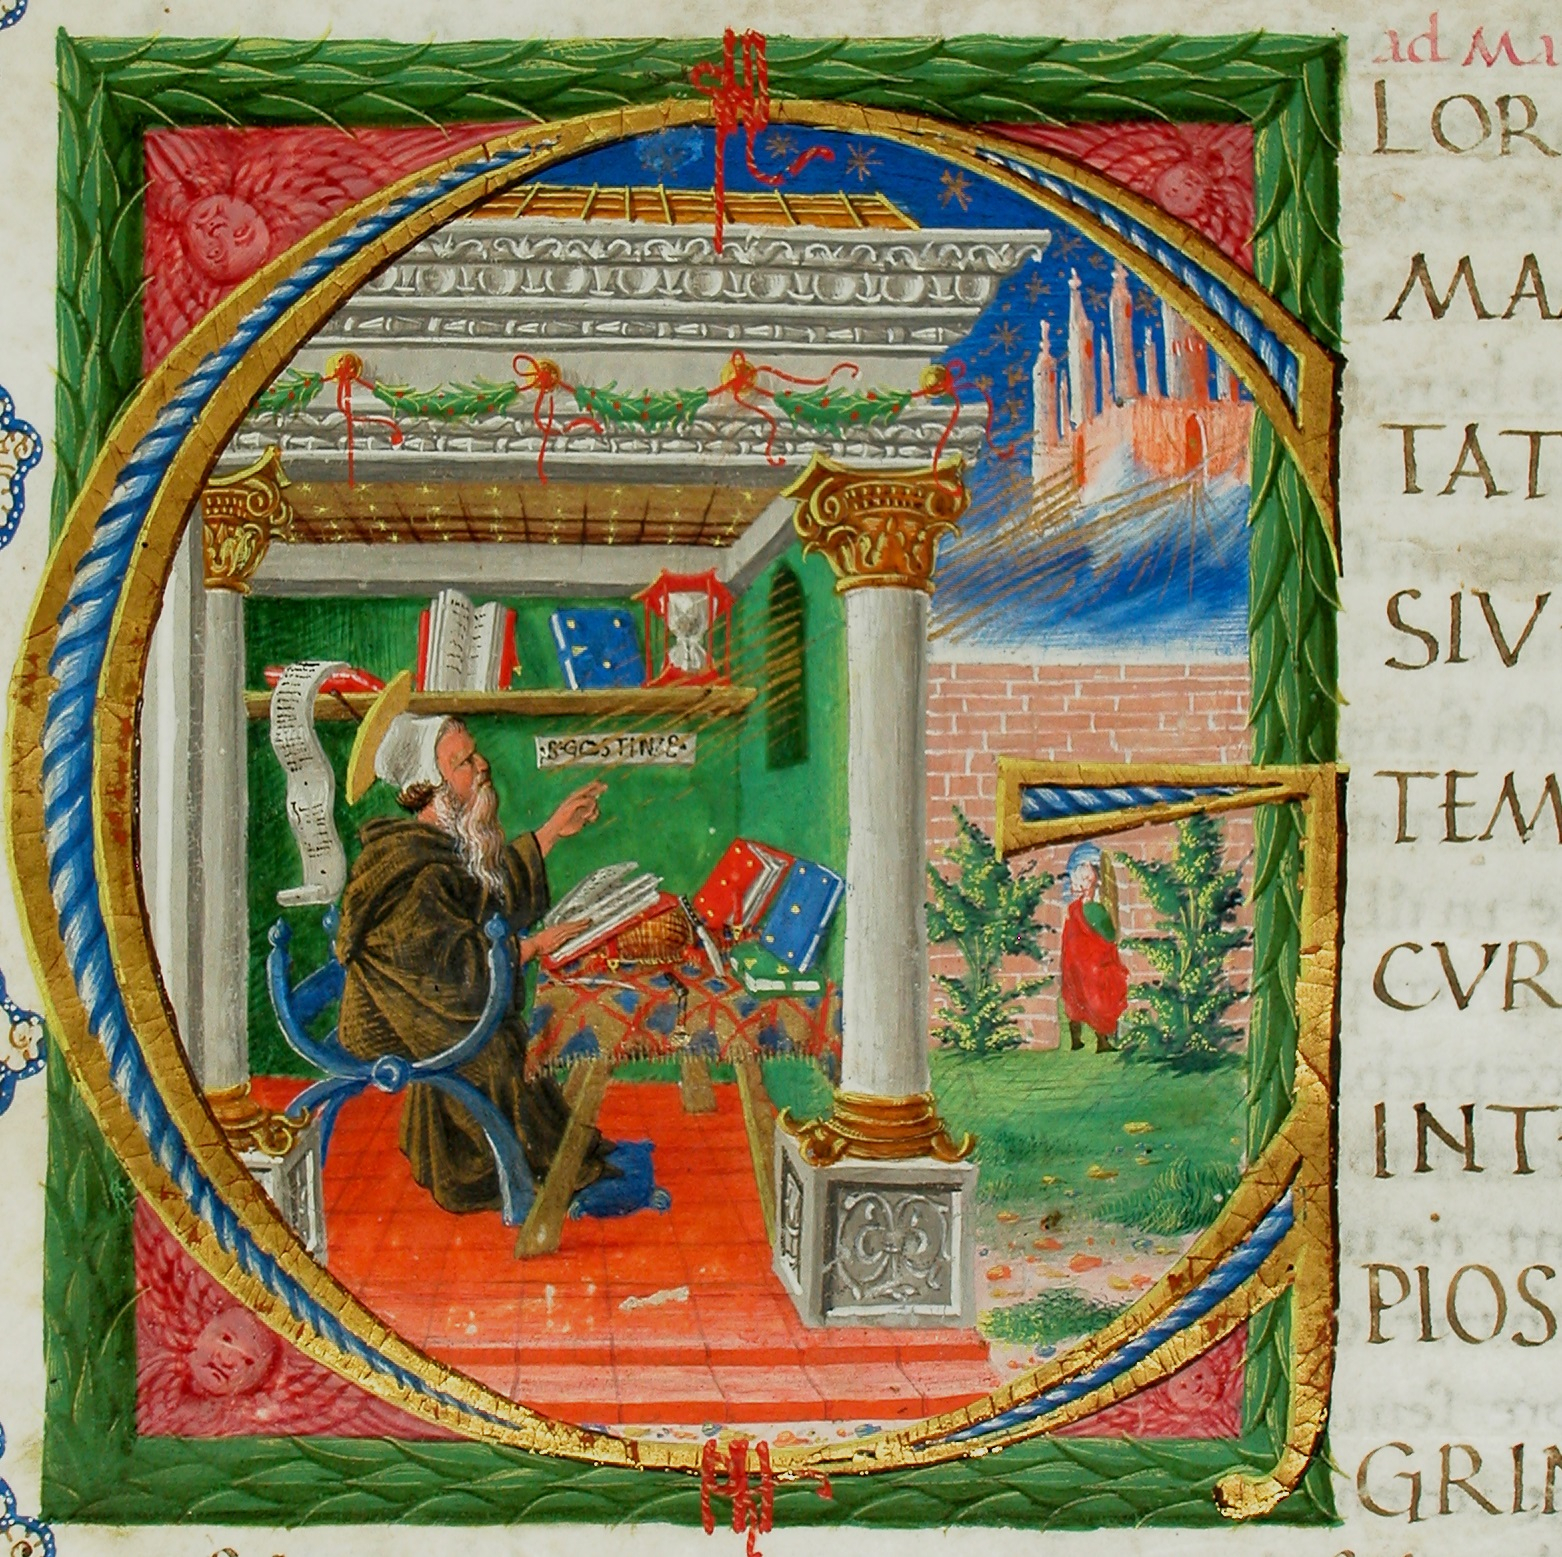 ad Ma
GLOR
MA
TAT
SIV
TEM
CVR
INT
PIOS
GRIN